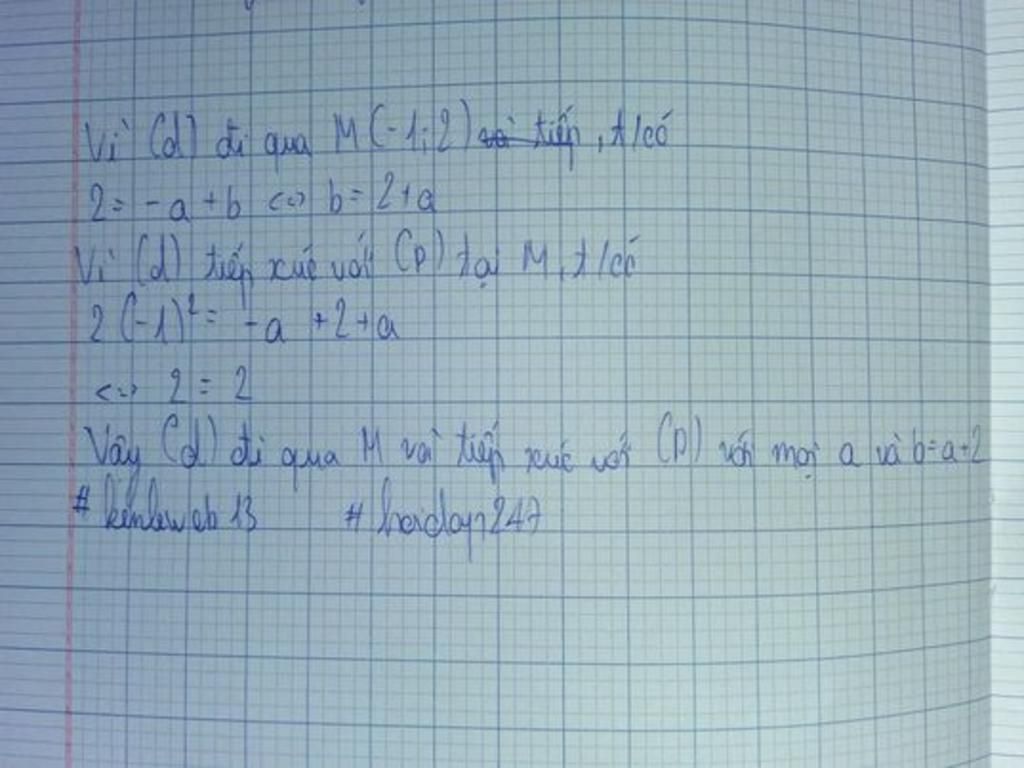 Vì (d) đi qua M(-1;2) và tiếp, t/có
2 = -a + b <=> b = 2+a
Vì (d) tiếp xúc với (P) tại M, t/có
2(-1)² = -a + 2 + a
<=> 2 = 2
Vậy (d) đi qua M và tiếp xúc với (P) với mọi a và b=a+2
# hoidap247